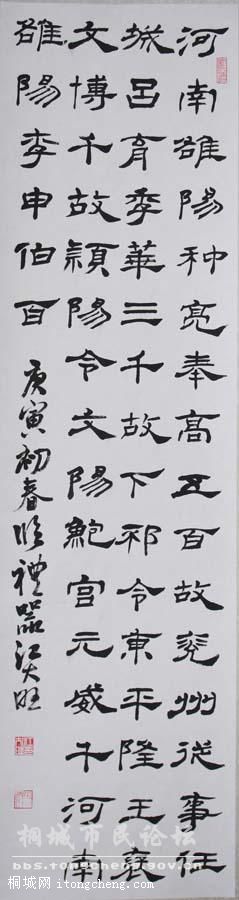 河南雒陽种亮奉高五百故兗州從事任
城呂育季華三千故下邳令東平陸王褒
文博千故穎陽令文陽鮑宮元威千河南
雒陽李申伯百
庚寅初春臨禮器江大旺
桐城市民论坛
桐城网 itongcheng.com